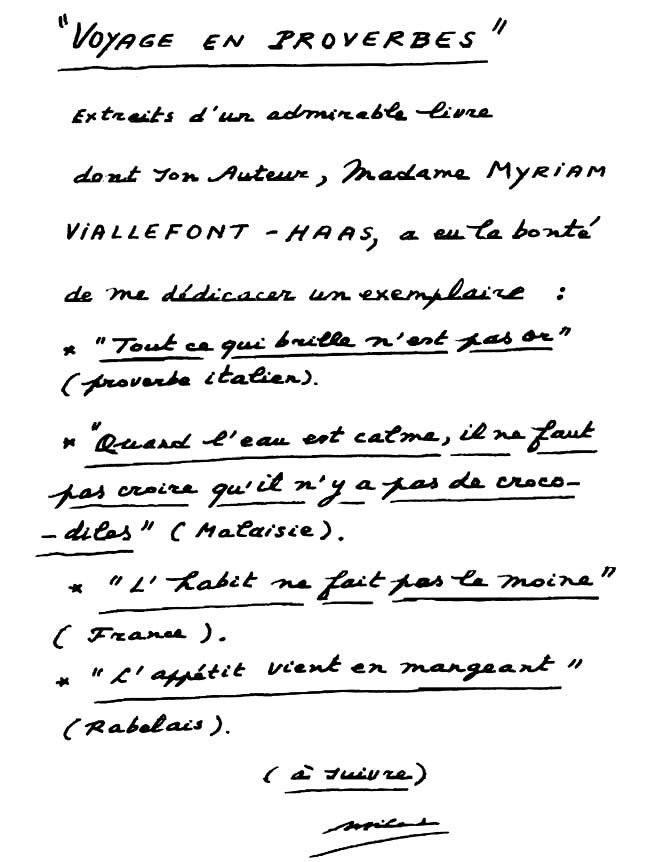 "VOYAGE EN PROVERBES"
Extraits d'un admirable livre
dont son Auteur, Madame MYRIAM
VIALLEFONT-HAAS, a eu la bonté
de me dédicacer un exemplaire :
* "Tout ce qui brille n'est pas or"
(proverbe italien).
* "Quand l'eau est calme, il ne faut
pas croire qu'il n'y a pas de croco-
-diles" (Malaisie).
* "L'habit ne fait pas le moine"
(France).
* "L'appétit vient en mangeant"
(Rabelais).
(à suivre)